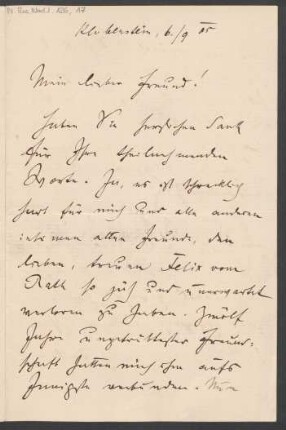 6/9 85
Mein lieber Freund!
Haben Sie herzlichen Dank
für Ihre theilnehmenden
Worte. Ja, es ist schrecklich
hart für mich und alle anderen
alten Freunde, den
lieben, treuen Felix vom
Rath so jäh und unerwartet
verloren zu haben. Zwölf
Jahre ungetrübtester Freund-
schaft hatten mich ihm aufs
Innigste verbunden. Nun